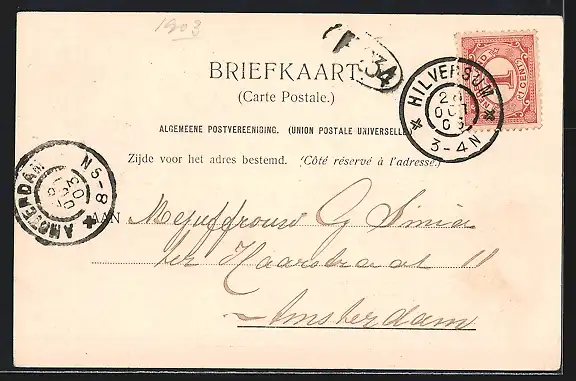 1903
BRIEFKAART.
(Carte Postale.)
ALGEMEENE POSTVEREENIGING. (UNION POSTALE UNIVERSELLE)
Zijde voor het adres bestemd. (Côté réservé à l'adresse.)
HILVERSUM
20
OCT
03
3-4N
AMSTERDAM
N 5-8
OCT
03
AAN Mejuffrouw G Sinia
ter Haarstraat 11
Amsterdam
1 CENT